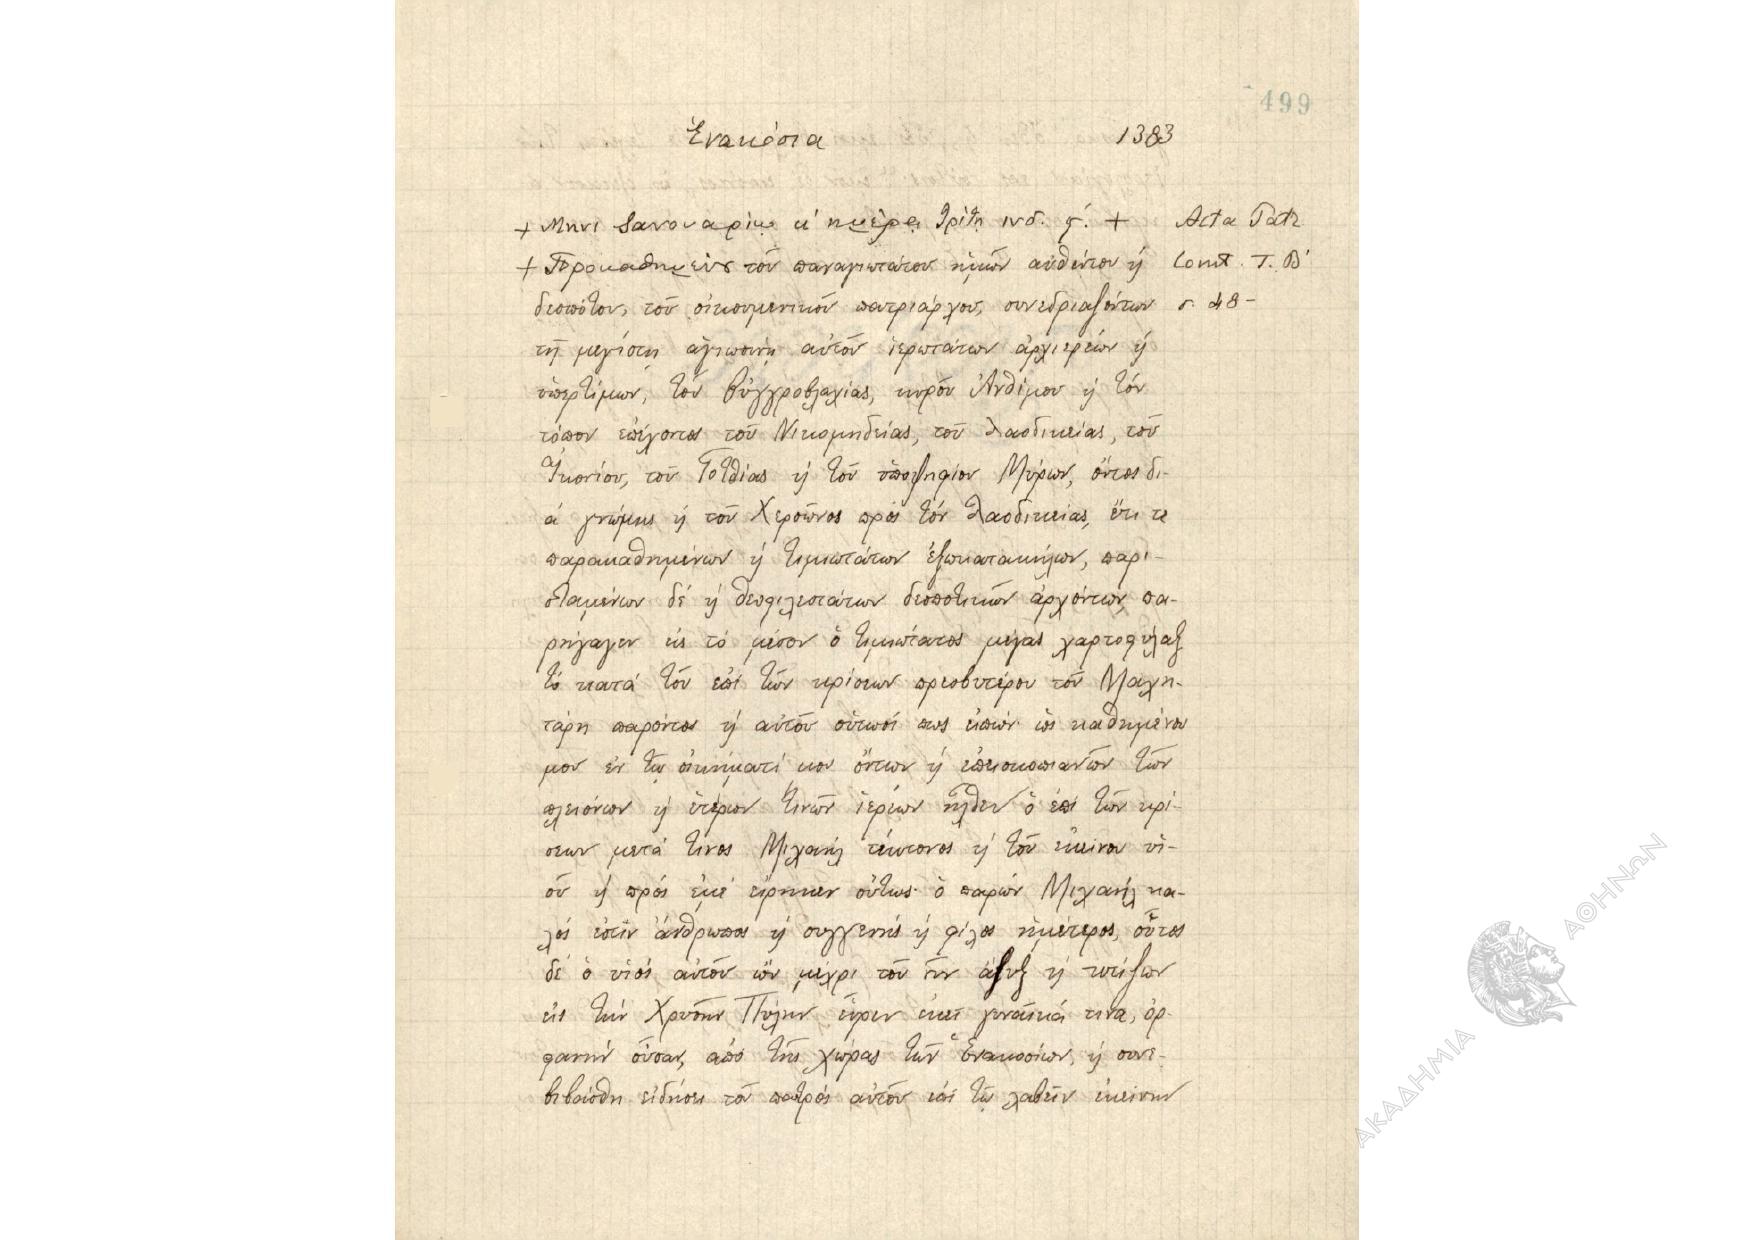 499
Ἐνακόσια 1383
+ Μηνὶ Ἰανουαρίῳ κ' ἡμέρᾳ τρίτῃ ἰνδ. ϛ'. + Acta Patr.
+ Προκαθημένου τοῦ παναγιωτάτου ἡμῶν αὐθέντου ϗ Const. T. B'
δεσπότου, τοῦ οἰκουμενικοῦ πατριάρχου, συνεδριαζόντων σ. 48-
τῇ μεγίστῃ ἁγιωσύνῃ αὐτοῦ ἱερωτάτων ἀρχιερέων ϗ
ὑπερτίμων, τοῦ Οὐγγροβλαχίας, κυροῦ Ἀνθίμου ϗ τὸν
τόπον ἐπέχοντος τοῦ Νικομηδείας, τοῦ Λαοδικείας, τοῦ
Ἰκονίου, τοῦ Γοτθίας ϗ τοῦ ὑποψηφίου Μύρων, ὄντος δι-
ὰ γνώμης ϗ τοῦ Χερσῶνος πρὸς τὸν Λαοδικείας, ἔτι τε
παρακαθημένων ϗ τιμιωτάτων ἐξωκατακήλων, παρι-
σταμένων δὲ ϗ θεοφιλεστάτων δεσποτικῶν ἀρχόντων, πα-
ρήγαγεν εἰς τὸ μέσον ὁ τιμιώτατος μέγας χαρτοφύλαξ
τὸ κατὰ τὸν ἐπὶ τῶν κρίσεων πρεσβυτέρου τοῦ Μαχη-
τάρη παρόντος ϗ αὐτοῦ οὑτωσί πως εἰπών· ὡς καθημένου
μου ἐν τῷ οἰκήματί μου ὄντων ϗ ἐπισκοπιανῶν τῶν
πλειόνων ϗ ἑτέρων τινῶν ἱερέων ἦλθεν ὁ ἐπὶ τῶν κρί-
σεων μετά τινος Μιχαὴλ τέκτονος ϗ τοῦ ἐκείνου υἱ-
οῦ ϗ πρὸς ἐμὲ εἴρηκεν οὕτως· ὁ παρὼν Μιχαὴλ κα-
λός ἐστιν ἄνθρωπος ϗ συγγενὴς ϗ φίλος ἡμέτερος, οὗτος
δὲ ὁ υἱὸς αὐτοῦ ὢν μέχρι τοῦ νῦν ἄζυξ ϗ τυπάζων
εἰς τὴν Χρυσῆν Πύλην εὗρεν ἐκεῖ γυναῖκά τινα, ὀρ-
φανὴν οὖσαν, ἀπὸ τῆς χώρας τῶν Ἐνακοσίων, ϗ συνε-
βιβάσθη εἰδήσει τοῦ πατρὸς αὐτοῦ ἐπὶ τῷ λαβεῖν ἐκείνην
ΑΚΑΔΗΜΙΑ ΑΘΗΝΩΝ